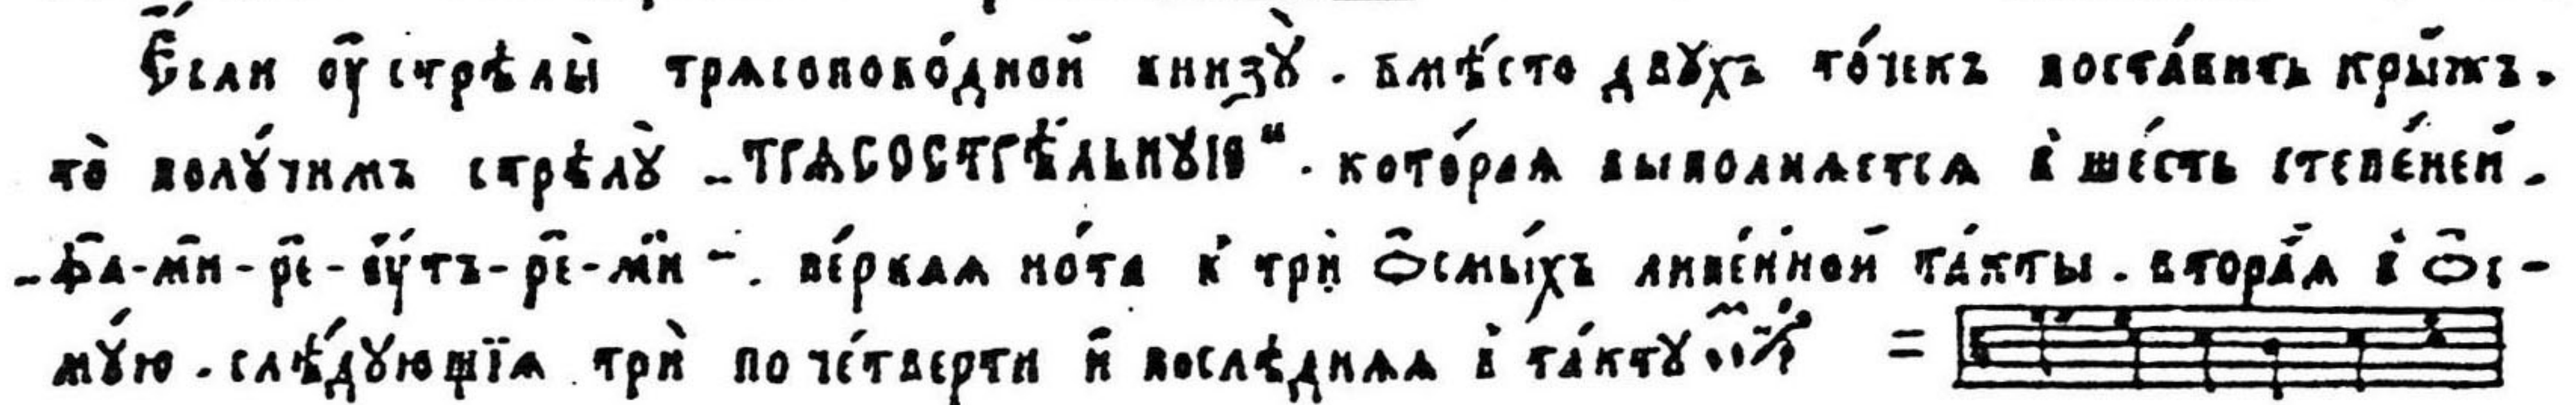 Е҆́сли ѹ҆ стрѣлы̀ трѧсоповóдной внизꙋ̀. вмѣ́сто двꙋхъ то́чекъ поста́вить кры́жъ.
то̀ полꙋ́чимъ стрѣлꙋ̀ „ТРѦСОСТРѢ́ЛЬНꙊЮ“. кото́раѧ выполнѧетсѧ в̀ ше́сть степе́ней.
„Фа̑-ми̑-ре̑-ѹ҆́тъ-ре̑-ми̑“. пе́рваѧ но́та в̀ трѝ ѻ҆смы́хъ лине́йной та́кты. втора́ѧ в̀ ѻ҆с-
мꙋ́ю. слѣ́дꙋющїѧ трѝ по че́тверти и҆ послѣднѧѧ в̀ та́ктꙋ =